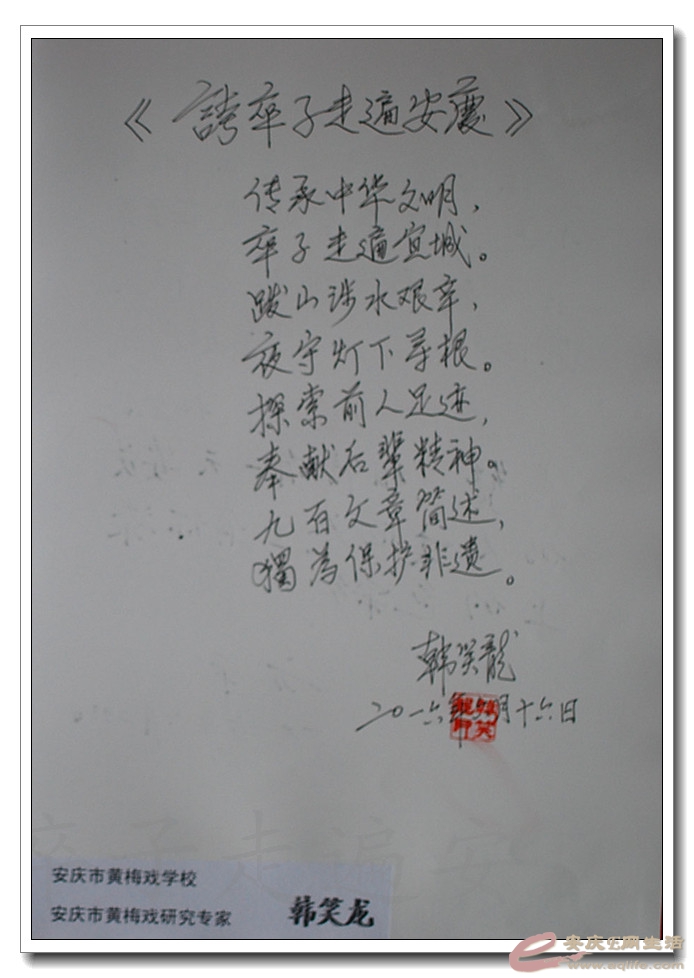 《誇卒子走遍安慶》
传承中华文明，
卒子走遍宜城。
跋山涉水艰辛，
夜守灯下寻根。
探索前人足迹，
奉献后辈精神。
九百文章简述，
獨為保护非遗。
韩笑龍
二〇一六年 月十六日
卒子走遍安
安庆市黄梅戏学校
安庆市黄梅戏研究专家 韩笑龙
安庆E网生活
www.aqlife.com